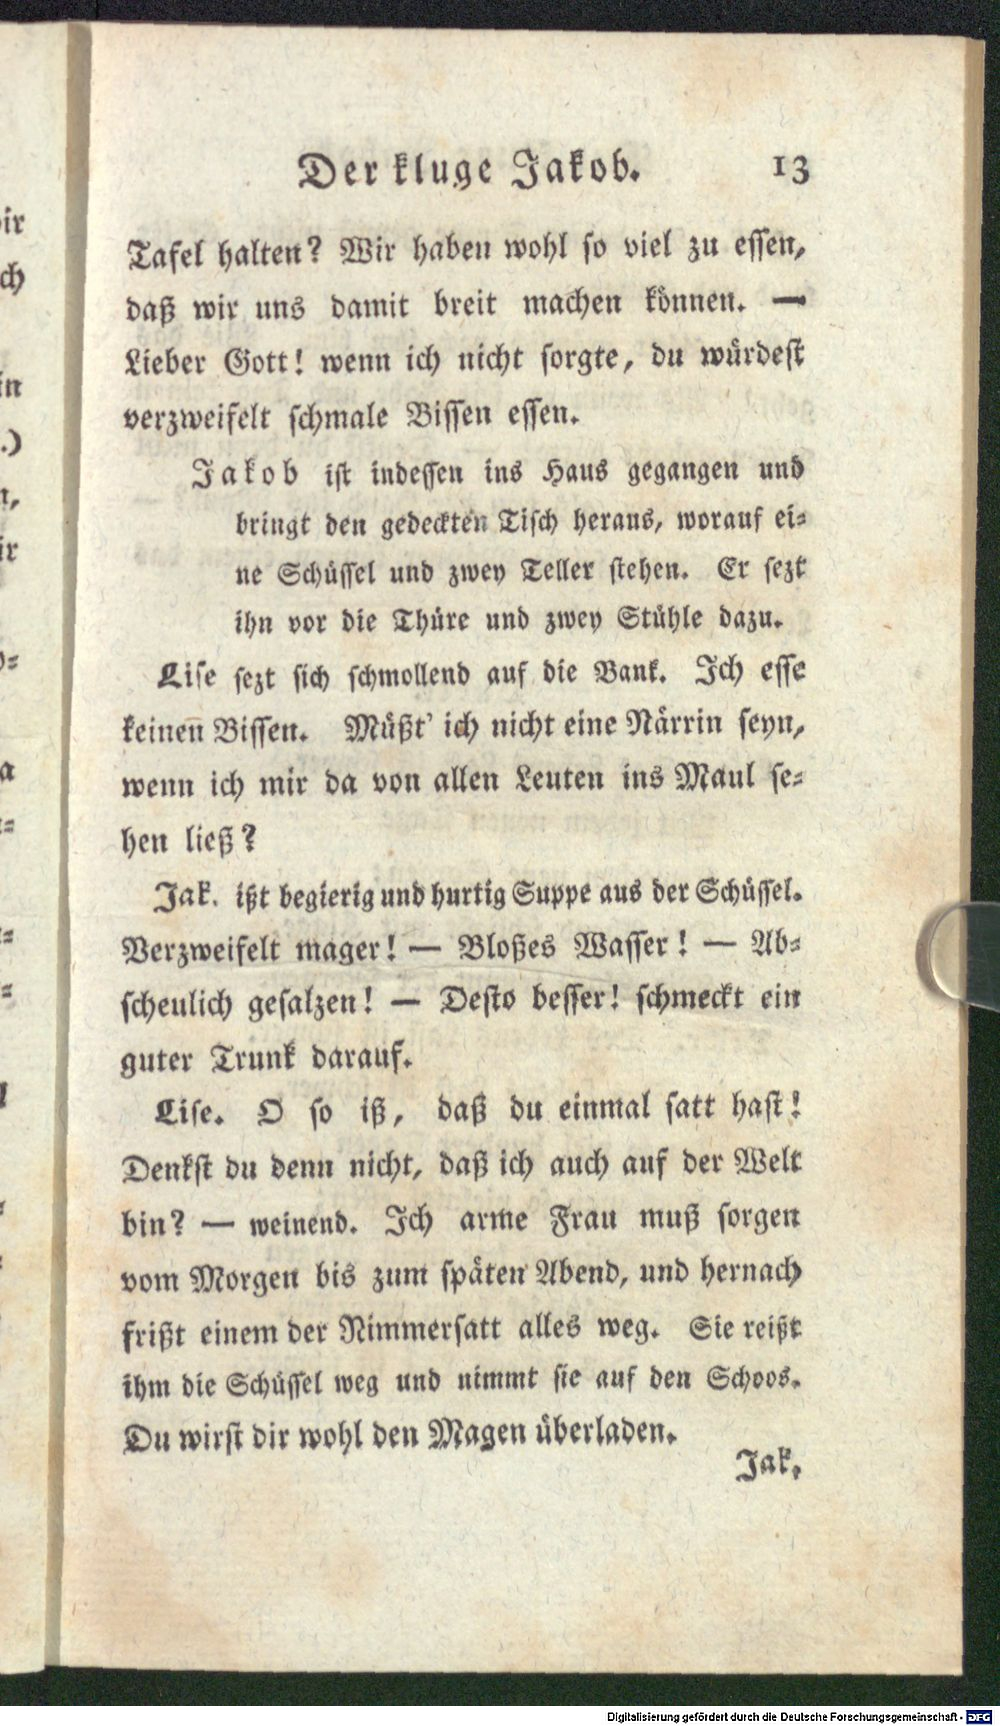 Der kluge Jakob. 13
Tafel halten? Wir haben wohl so viel zu essen,
daß wir uns damit breit machen können. —
Lieber Gott! wenn ich nicht sorgte, du würdest
verzweifelt schmale Bissen essen.
Jakob ist indessen ins Haus gegangen und
bringt den gedeckten Tisch heraus, worauf ei-
ne Schüssel und zwey Teller stehen. Er sezt
ihn vor die Thüre und zwey Stühle dazu.
Lise sezt sich schmollend auf die Bank. Ich esse
keinen Bissen. Müßt' ich nicht eine Närrin seyn,
wenn ich mir da von allen Leuten ins Maul se-
hen ließ?
Jak. ißt begierig und hurtig Suppe aus der Schüssel.
Verzweifelt mager! — Bloßes Wasser! — Ab-
scheulich gesalzen! — Desto besser! schmeckt ein
guter Trunk darauf.
Lise. O so iß, daß du einmal satt hast!
Denkst du denn nicht, daß ich auch auf der Welt
bin? — weinend. Ich arme Frau muß sorgen
vom Morgen bis zum späten Abend, und hernach
frißt einem der Nimmersatt alles weg. Sie reißt
ihm die Schüssel weg und nimmt sie auf den Schoos.
Du wirst dir wohl den Magen überladen.
Jak.
Digitalisierung gefördert durch die Deutsche Forschungsgemeinschaft - DFG